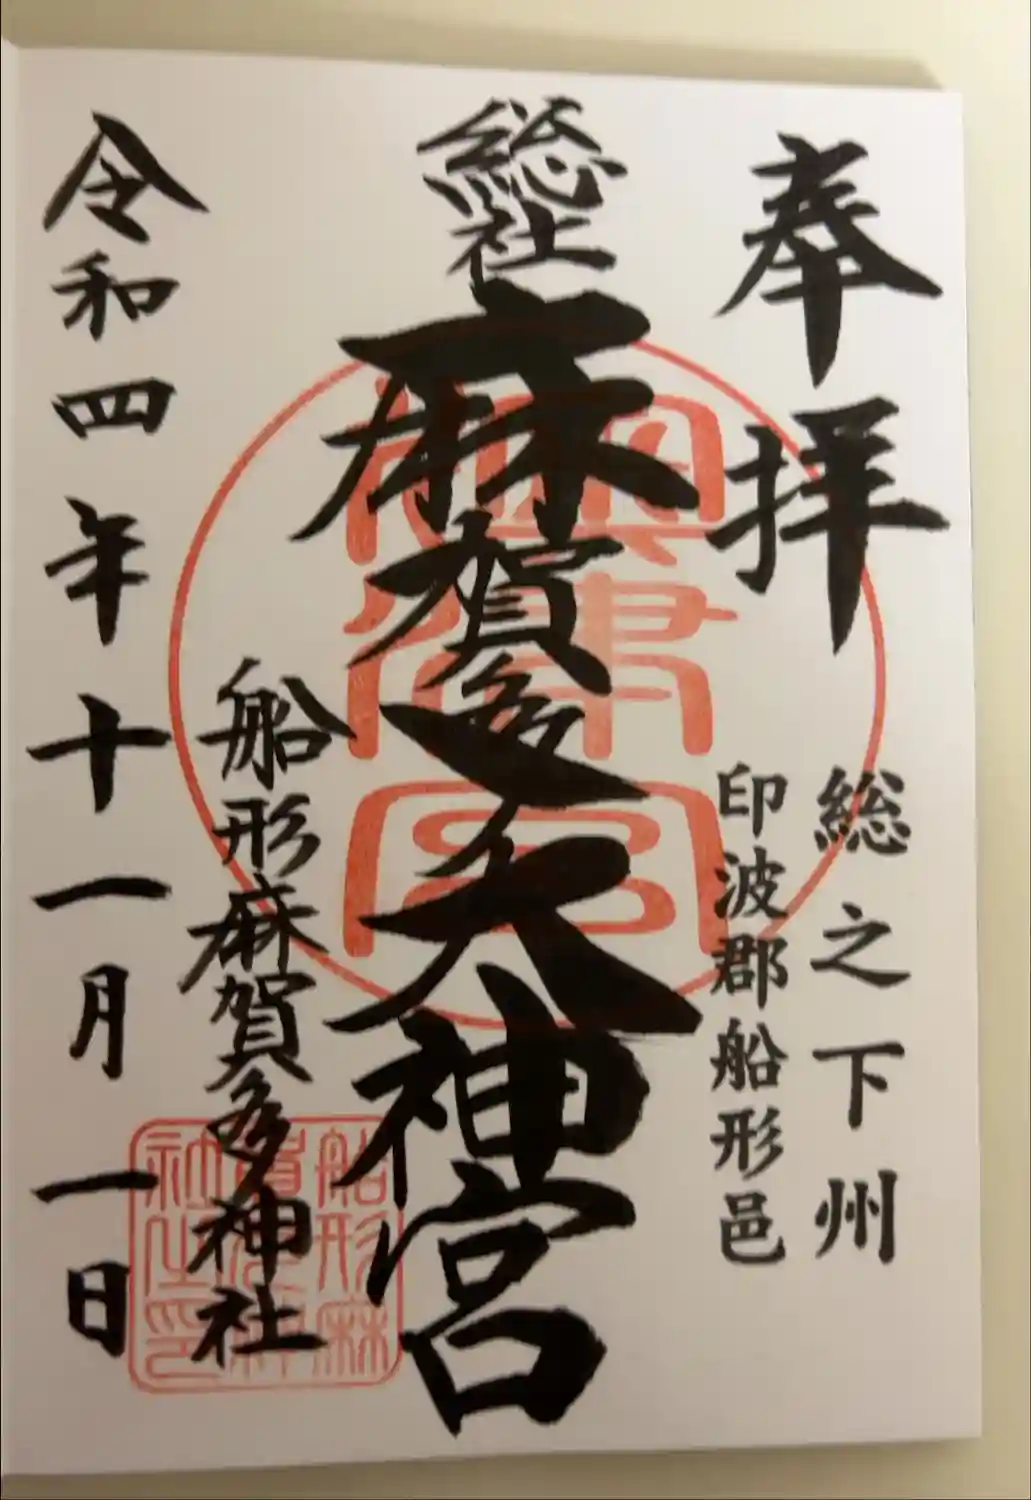 奉拝
総之下州
印波郡船形邑
総社麻賀多大神宮
奥津宮
船形麻賀多神社
船形麻
賀多神
社之印
令和四年十一月一日